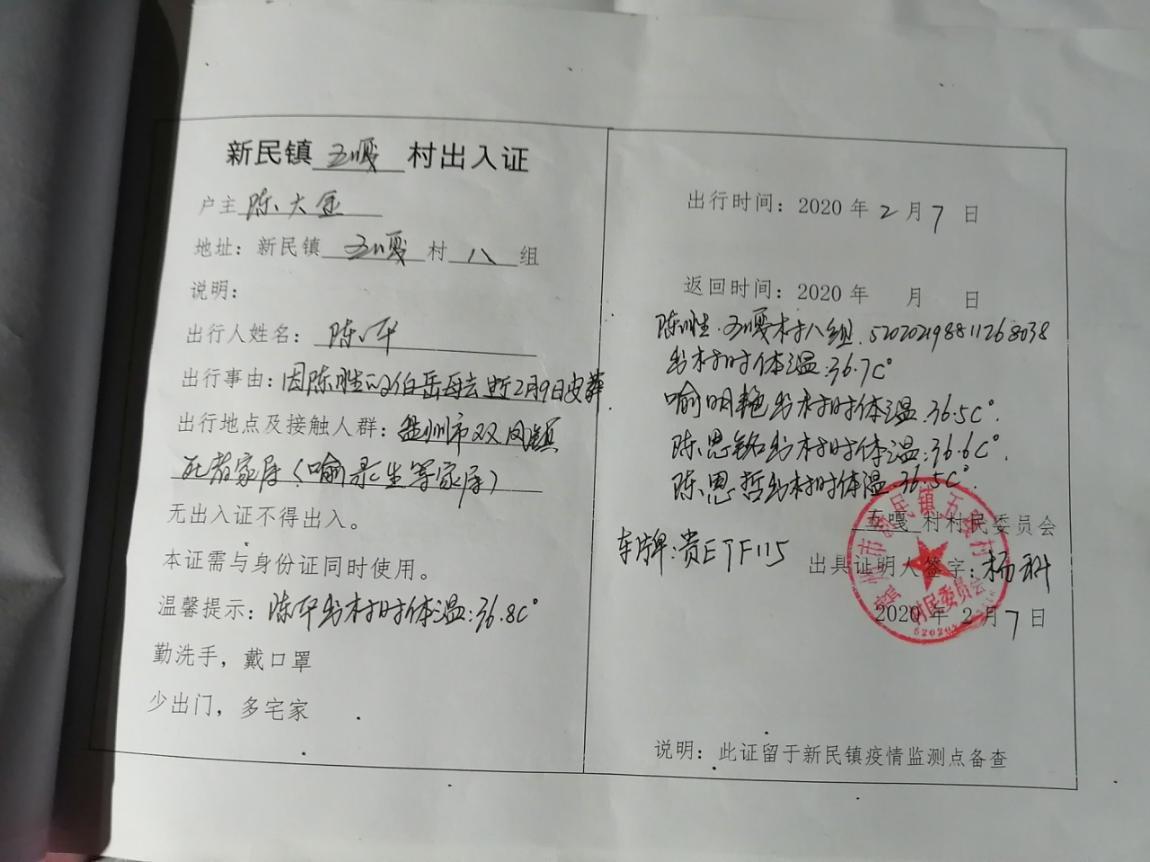 新民镇 五嘎 村出入证
户主 陈大金
地址：新民镇 五嘎 村 八 组
说明：
出行人姓名： 陈华
出行事由：因陈胜的伯岳母去逝2月9日安葬
出行地点及接触人群：盘州市双凤镇
死者家庭（喻录生等家庭）
无出入证不得出入。
本证需与身份证同时使用。
温馨提示：陈华出村时体温：36.8C°
勤洗手，戴口罩
少出门，多宅家
出行时间：2020 年 2 月 7 日
返回时间：2020 年 月 日
陈胜.五嘎村八组.520202198811268038
出村时体温：36.7C°
喻明艳出村时体温：36.5C°
陈恩铭出村时体温：36.6C°.
陈恩哲出村时体温：36.5C°.
五嘎 村村民委员会
车牌：贵ETF115
出具证明人签字：杨科
2020 年 2 月 7 日
盘州市新民镇五嘎村
村民委员会
说明：此证留于新民镇疫情监测点备查